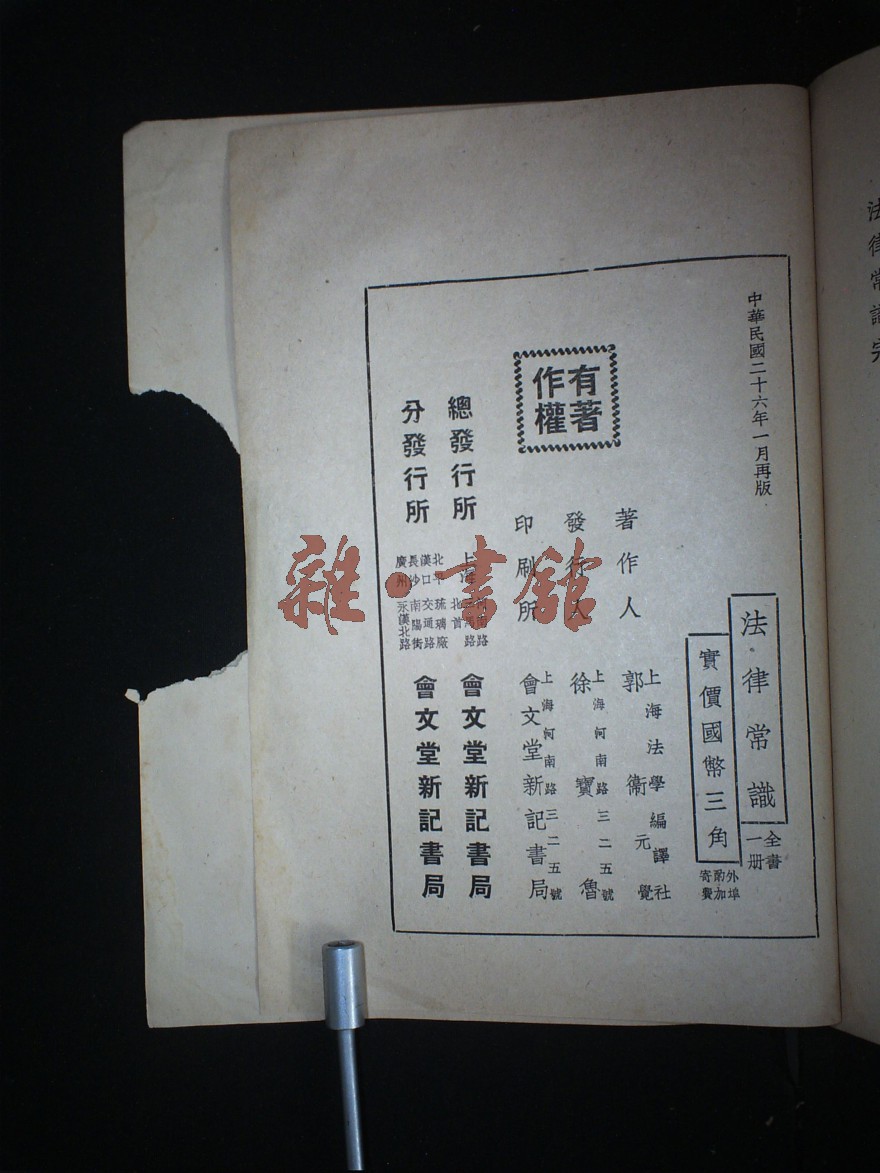 法律常識完
中華民國二十六年一月再版
法律常識
全書一册
實價國幣三角
外埠酌加寄費
著作人
上海法學編譯社
郭衞元覺
發行人
上海河南路三二五號
徐寶魯
印刷所
上海河南路三二五號
會文堂新記書局
有著作權
總發行所
上海
河南路
北首
會文堂新記書局
分發行所
北平 琉璃廠
漢口 交通路
長沙 南陽街
廣州 永漢北路
會文堂新記書局
雜·書館